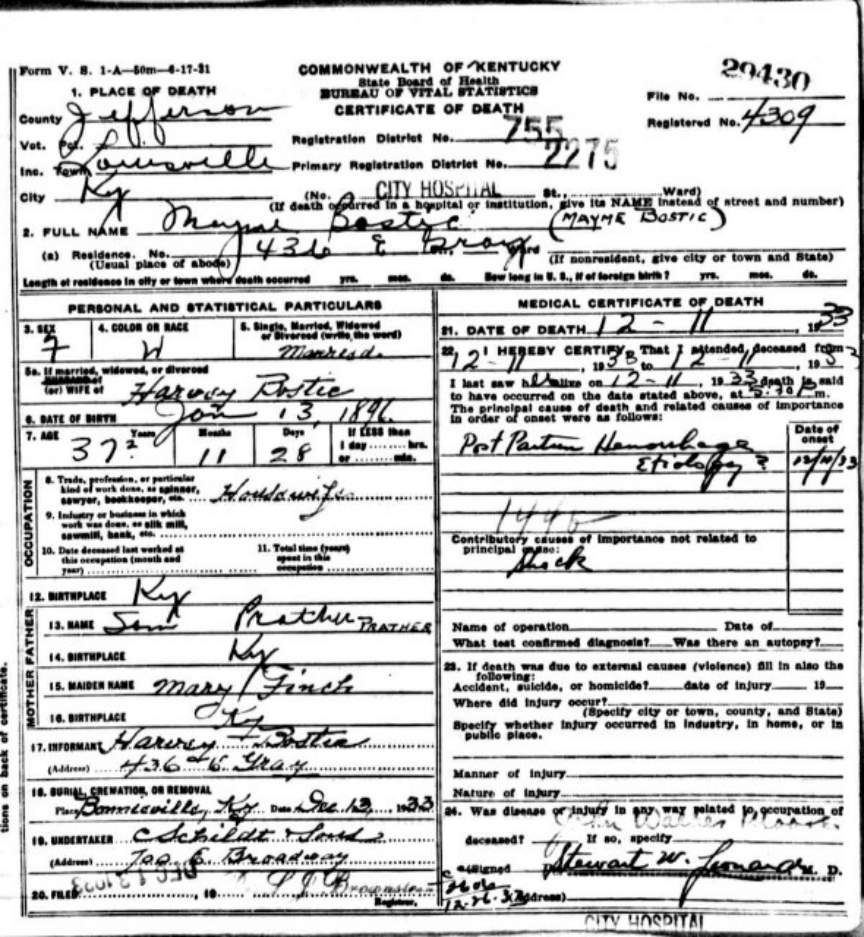 Form V. S. 1-A—50m—6-17-31
COMMONWEALTH OF KENTUCKY
State Board of Health
BUREAU OF VITAL STATISTICS
CERTIFICATE OF DEATH
29430
File No.
Registered No. 4309
1. PLACE OF DEATH
County Jefferson
Vot. Pct.
Registration District No. 755
Inc. Town Louisville
Primary Registration District No. 2275
City Ky (No. CITY HOSPITAL St., Ward)
(If death occurred in a hospital or institution, give its NAME instead of street and number)
2. FULL NAME Mayme Bostic (MAYME BOSTIC)
(a) Residence. No. 436 E Gray Ward
(Usual place of abode) (If nonresident, give city or town and State)
Length of residence in city or town where death occurred yrs. mos. ds. How long in U. S., if of foreign birth? yrs. mos. ds.
PERSONAL AND STATISTICAL PARTICULARS
3. SEX 4. COLOR OR RACE 5. Single, Married, Widowed
or Divorced (write the word)
F W Married.
5a. If married, widowed, or divorced
(or) WIFE of Harvey Bostic
6. DATE OF BIRTH Jan 13, 1896
7. AGE Years Months Days If LESS than
37 ? 11 28 1 day hrs.
or min.
OCCUPATION
8. Trade, profession, or particular
kind of work done, as spinner,
sawyer, bookkeeper, etc. Housewife
9. Industry or business in which
work was done, as silk mill,
sawmill, bank, etc.
10. Date deceased last worked at 11. Total time (years)
this occupation (month and spent in this
year) occupation
12. BIRTHPLACE Ky
FATHER
13. NAME Sam Prather PRATHER
14. BIRTHPLACE Ky
MOTHER
15. MAIDEN NAME Mary Finch
16. BIRTHPLACE Ky
17. INFORMANT Harvey Bostic
(Address) 436 E. Gray
18. BURIAL, CREMATION, OR REMOVAL
Place Bonnieville, Ky Date Dec 13, 1933
19. UNDERTAKER C Schildt & Sons
(Address) E. Broadway
20. FILED DEC 13 1933, 19
Registrar.
MEDICAL CERTIFICATE OF DEATH
21. DATE OF DEATH 12 - 11, 1933
22. I HEREBY CERTIFY, That I attended, deceased from
12-11, 1933 to 12-11, 1933
I last saw her alive on 12-11, 1933 death is said
to have occurred on the date stated above, at m.
The principal cause of death and related causes of importance
in order of onset were as follows:
Date of
onset
Post Partum Hemorrhage
Etiology ? 12/11/33
Contributory causes of importance not related to
principal cause:
Shock
Name of operation Date of
What test confirmed diagnosis? Was there an autopsy?
23. If death was due to external causes (violence) fill in also the
following:
Accident, suicide, or homicide? date of injury 19
Where did injury occur?
(Specify city or town, county, and State)
Specify whether injury occurred in industry, in home, or in
public place.
Manner of injury
Nature of injury
24. Was disease or injury in any way related to occupation of
deceased? If so, specify
(Signed) Stewart W. Leonard M. D.
(Address)
CITY HOSPITAL
tions on back of certificate.